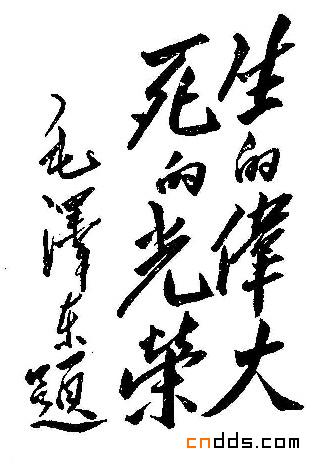 生的偉大
死的光榮
毛澤东題
cndds.com